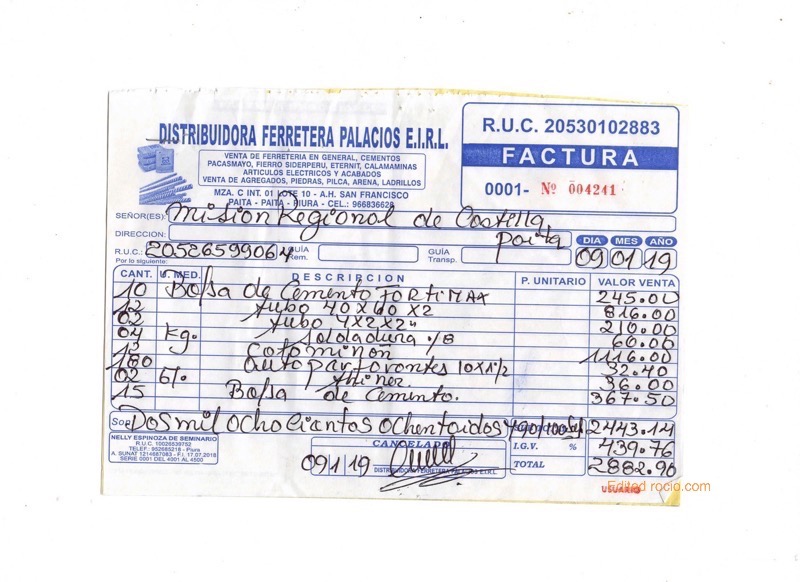 DISTRIBUIDORA FERRETERA PALACIOS E.I.R.L.
VENTA DE FERRETERIA EN GENERAL, CEMENTOS
PACASMAYO, FIERRO SIDERPERU, ETERNIT, CALAMAMINAS
ARTICULOS ELECTRICOS Y ACABADOS
VENTA DE AGREGADOS, PIEDRAS, PILCA, ARENA, LADRILLOS
MZA. C INT. 01 LOTE 10 - A.H. SAN FRANCISCO
PAITA - PAITA - PIURA - CEL.: 966836628
R.U.C. 20530102883
FACTURA
0001- Nº 004241
SEÑOR(ES): Mision Regional de Castilla
DIRECCION: paita
DIA MES AÑO
R.U.C.: 20526599064 GUÍA Rem. GUÍA Transp. 09 01 19
Por lo siguiente:
CANT. U. MED. DESCRIPCION P. UNITARIO VALOR VENTA
10 Bolsa de Cemento FORTIMAX 245.00
12 tubo 40x60x2 816.00
02 tubo 4x2x2" 210.00
04 Kg. Soldadura 1/8 60.00
12 1116.00
180 autoparforontes 10x1½ 32.40
02 thiner 36.00
15 Bolsa de Cemento. 367.50
Son: Dos mil ochocientos ochentaidos y 90/100 2443.14
I.G.V. % 439.76
TOTAL 2882.90
NELLY ESPINOZA DE SEMINARIO
R.U.C. 10026539752
TELEF.: 952685218 - Piura
A. SUNAT 1214687083 - F.I. 17.07.2018
SERIE 0001 DEL 4001 AL 4500
CANCELADO
09/1/19
DISTRIBUIDORA FERRETERA PALACIOS E.I.R.L.
USUARIO
Edited rocio.com